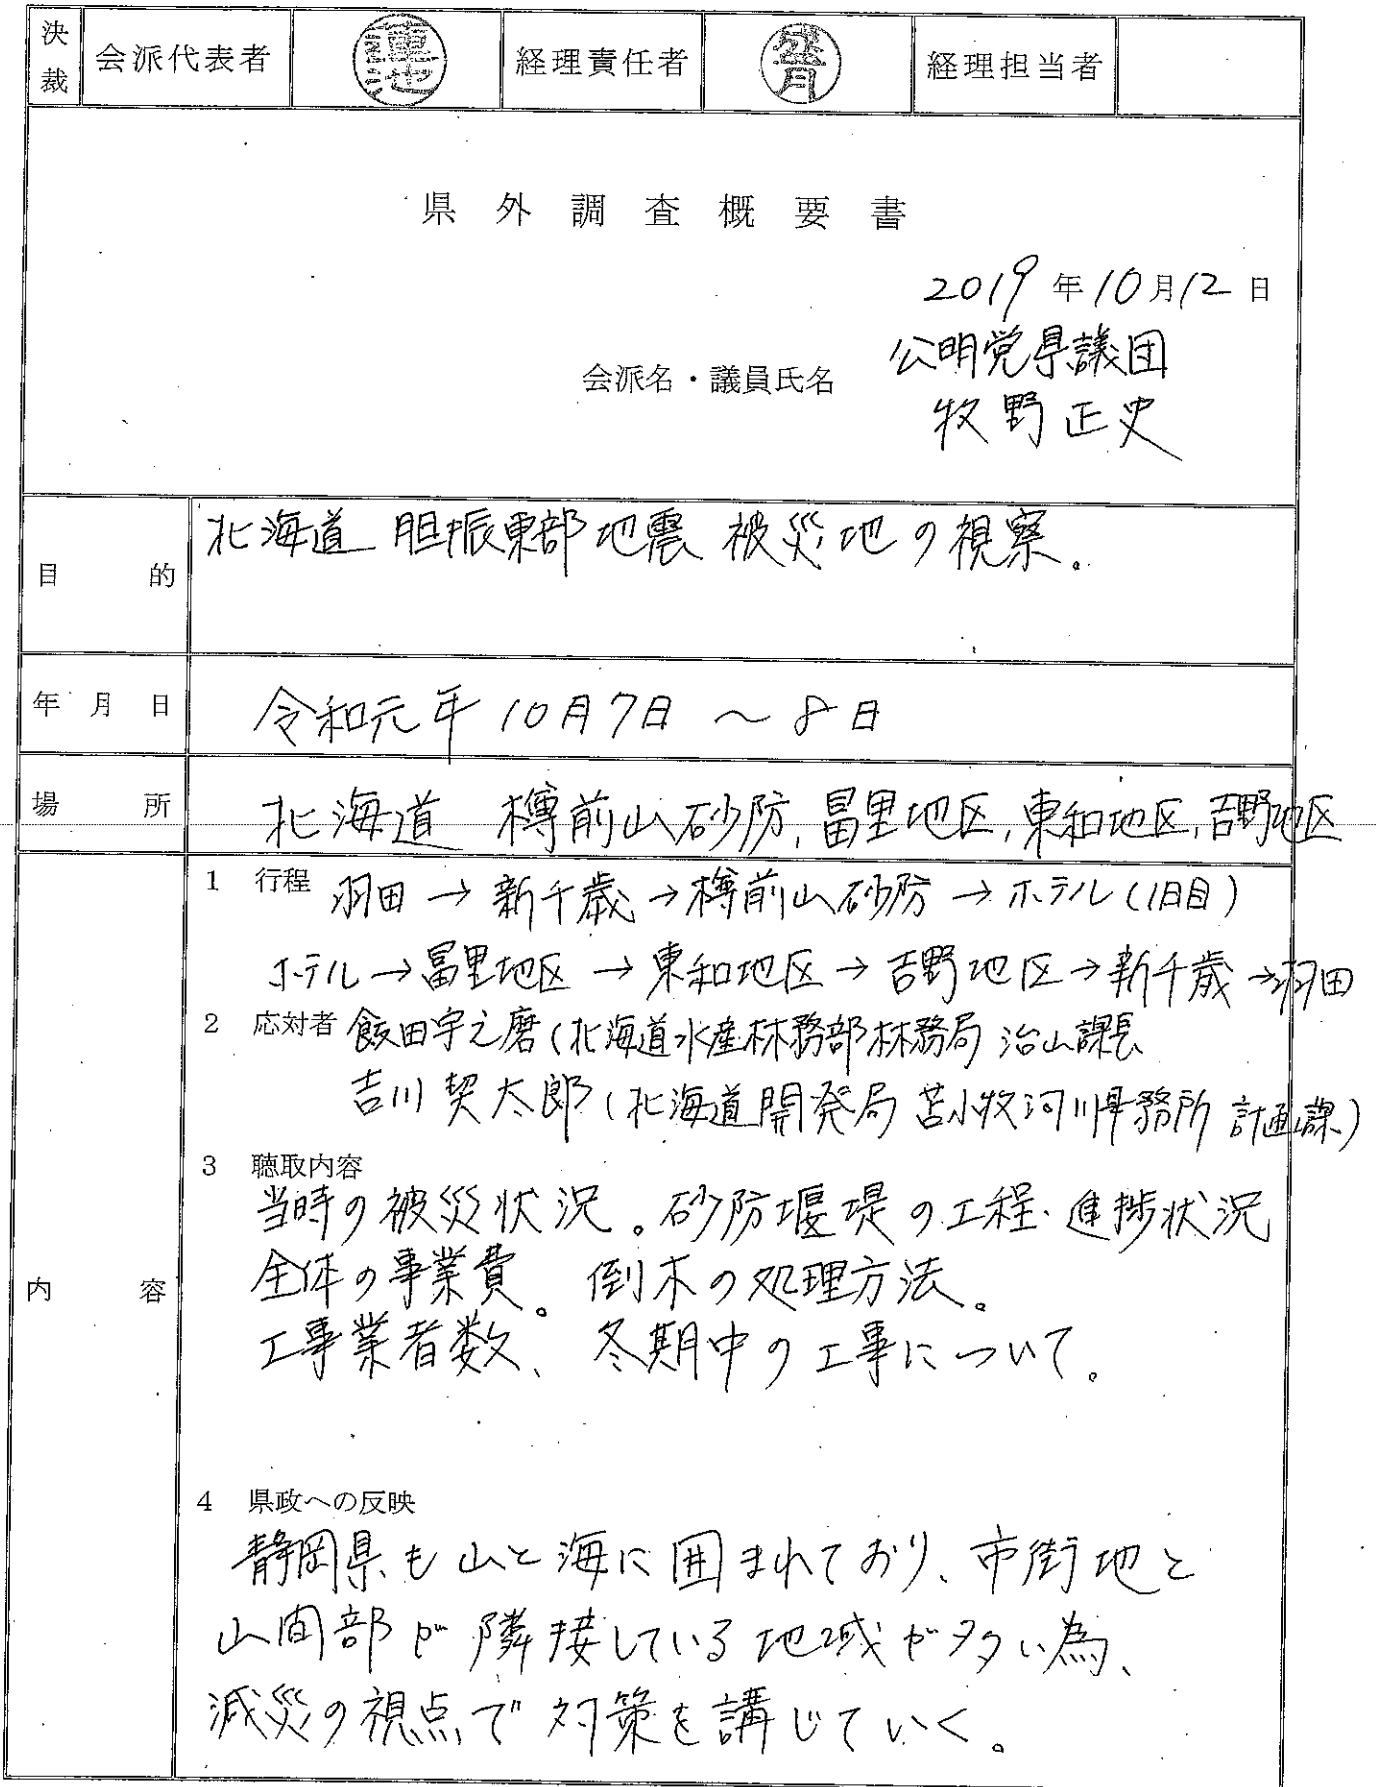 決裁 会派代表者 蓮池 経理責任者 経理担当者
県外調査概要書
2019年10月12日
公明党県議団
会派名・議員氏名
牧野正史
目的 北海道 胆振東部地震 被災地の視察。
年月日 令和元年10月7日 〜 8日
場所 北海道 樽前山砂防, 冨里地区, 東和地区, 吉野地区
内容
1 行程 羽田→新千歳→樽前山砂防→ホテル(1日目)
ホテル→冨里地区→東和地区→吉野地区→新千歳→羽田
2 応対者 飯田宇之磨(北海道水産林務部林務局 治山課長
吉川契太郎(北海道開発局 苫小牧河川事務所 計画課)
3 聴取内容
当時の被災状況。砂防堰堤の工程・進捗状況
全体の事業費。倒木の処理方法。
工事業者数、冬期中の工事について。
4 県政への反映
静岡県も山と海に囲まれており、市街地と
山間部が隣接している地域が多い為、
減災の視点で対策を講じていく。